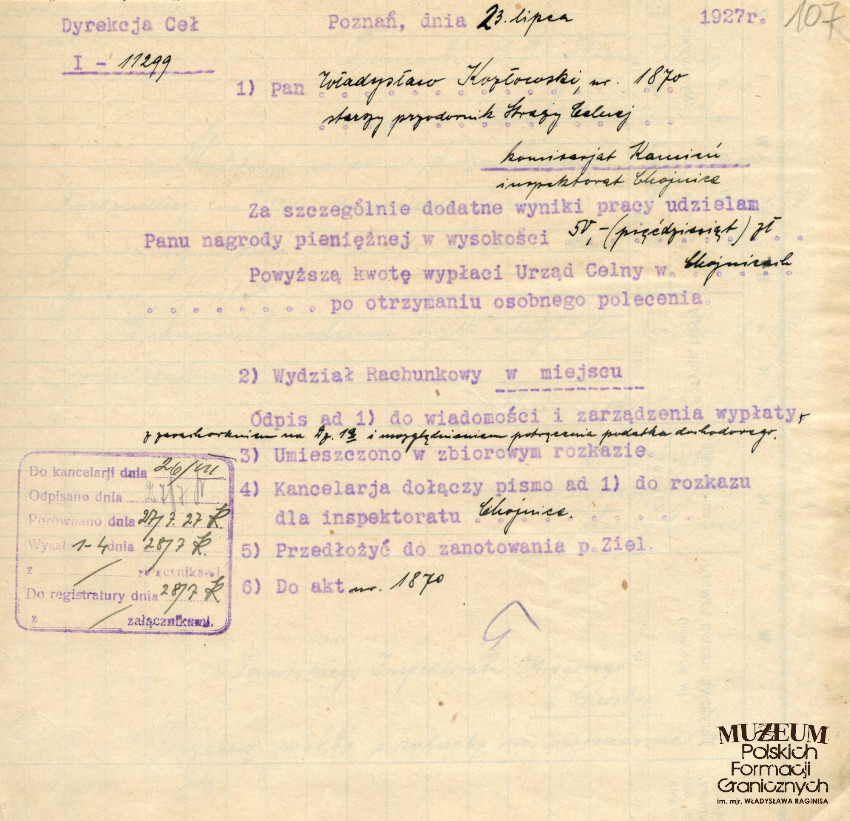 Dyrekcja Ceł
Poznań, dnia 23. lipca 1927r. 107
I - 11299
1) Pan Władysław Kozłowski, nr. 1870
starszy przodownik Straży Celnej
komisarjat Kamień
inspektorat Chojnice
Za szczególnie dodatne wyniki pracy udzielam
Panu nagrody pieniężnej w wysokości 50,- (pięćdziesiąt) zł
Powyższą kwotę wypłaci Urząd Celny w. Chojnicach
po otrzymaniu osobnego polecenia.
2) Wydział Rachunkowy w miejscu
Odpis ad 1) do wiadomości i zarządzenia wypłaty,
z zarachowaniem na i uwzględnieniem potrącenia podatku dochodowego.
3) Umieszczono w zbiorowym rozkazie.
4) Kancelarja dołączy pismo ad 1) do rozkazu
dla inspektoratu Chojnice.
5) Przedłożyć do zanotowania p. Ziel.
6) Do akt nr. 1870
Do kancelarji dnia 26/VII
Odpisano dnia 27/7
Porównano dnia 27/7. 27
Wysł. 1-4 dnia 28/7
z załącznikami
Do registratury dnia 28/7
z załącznikami.
MUZEUM
Polskich
Formacji
Granicznych
im. mjr. WŁADYSŁAWA RAGINISA